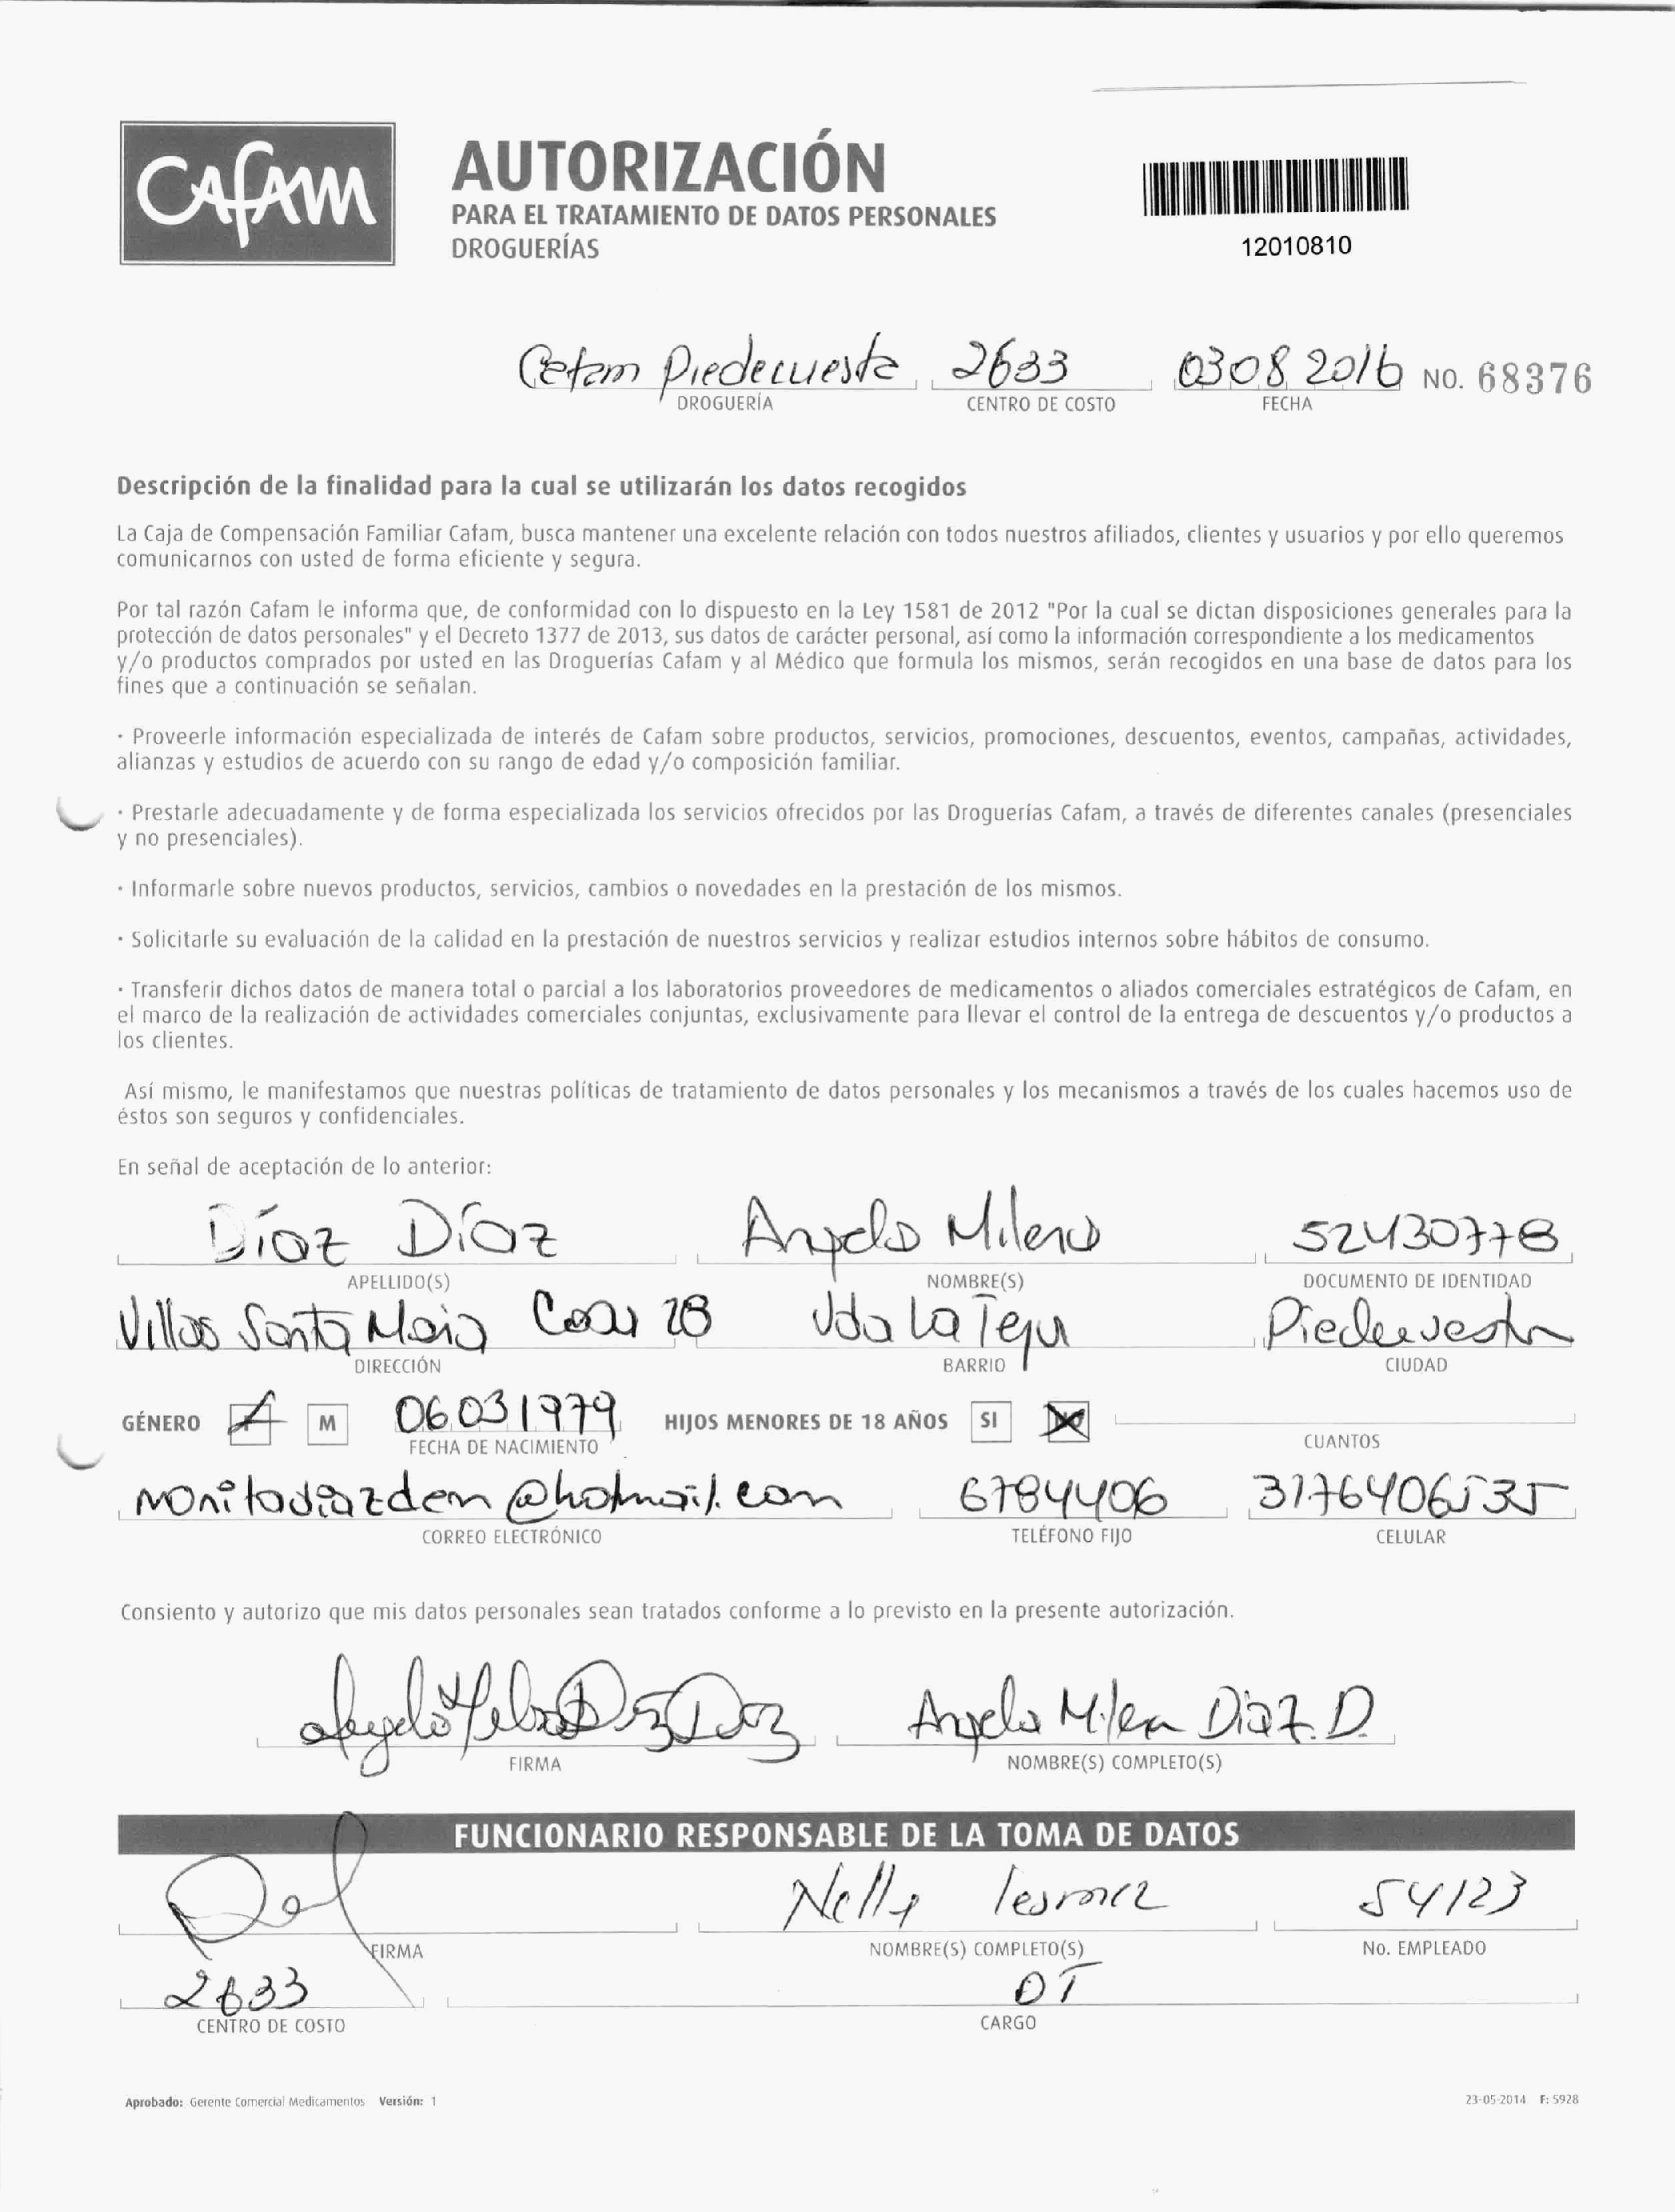 CAFAM
AUTORIZACIÓN
PARA EL TRATAMIENTO DE DATOS PERSONALES
DROGUERÍAS
12010810
Cafam Piedecuesta 2633 03 08 2016 NO. 68376
DROGUERÍA CENTRO DE COSTO FECHA
Descripción de la finalidad para la cual se utilizarán los datos recogidos
La Caja de Compensación Familiar Cafam, busca mantener una excelente relación con todos nuestros afiliados, clientes y usuarios y por ello queremos
comunicarnos con usted de forma eficiente y segura.
Por tal razón Cafam le informa que, de conformidad con lo dispuesto en la Ley 1581 de 2012 "Por la cual se dictan disposiciones generales para la
protección de datos personales" y el Decreto 1377 de 2013, sus datos de carácter personal, así como la información correspondiente a los medicamentos
y/o productos comprados por usted en las Droguerías Cafam y al Médico que formula los mismos, serán recogidos en una base de datos para los
fines que a continuación se señalan.
· Proveerle información especializada de interés de Cafam sobre productos, servicios, promociones, descuentos, eventos, campañas, actividades,
alianzas y estudios de acuerdo con su rango de edad y/o composición familiar.
· Prestarle adecuadamente y de forma especializada los servicios ofrecidos por las Droguerías Cafam, a través de diferentes canales (presenciales
y no presenciales).
· Informarle sobre nuevos productos, servicios, cambios o novedades en la prestación de los mismos.
· Solicitarle su evaluación de la calidad en la prestación de nuestros servicios y realizar estudios internos sobre hábitos de consumo.
· Transferir dichos datos de manera total o parcial a los laboratorios proveedores de medicamentos o aliados comerciales estratégicos de Cafam, en
el marco de la realización de actividades comerciales conjuntas, exclusivamente para llevar el control de la entrega de descuentos y/o productos a
los clientes.
Así mismo, le manifestamos que nuestras políticas de tratamiento de datos personales y los mecanismos a través de los cuales hacemos uso de
éstos son seguros y confidenciales.
En señal de aceptación de lo anterior:
Díaz Díaz Angela Milena 52430778
APELLIDO(S) NOMBRE(S) DOCUMENTO DE IDENTIDAD
Villas Santa Maria Casa 28 Vda La Piedecuesta
DIRECCIÓN BARRIO CIUDAD
GÉNERO M 06031979 HIJOS MENORES DE 18 AÑOS SI NO
FECHA DE NACIMIENTO CUANTOS
monitadiazdem@hotmail.com 6784406 3176406535
CORREO ELECTRÓNICO TELÉFONO FIJO CELULAR
Consiento y autorizo que mis datos personales sean tratados conforme a lo previsto en la presente autorización.
Angela Milena Diaz Diaz Angela Milena Diaz. D.
FIRMA NOMBRE(S) COMPLETO(S)
FUNCIONARIO RESPONSABLE DE LA TOMA DE DATOS
Nelly 54123
FIRMA NOMBRE(S) COMPLETO(S) No. EMPLEADO
2633 DT
CENTRO DE COSTO CARGO
Aprobado: Gerente Comercial Medicamentos Versión: 1 23-05-2014 F: 5928